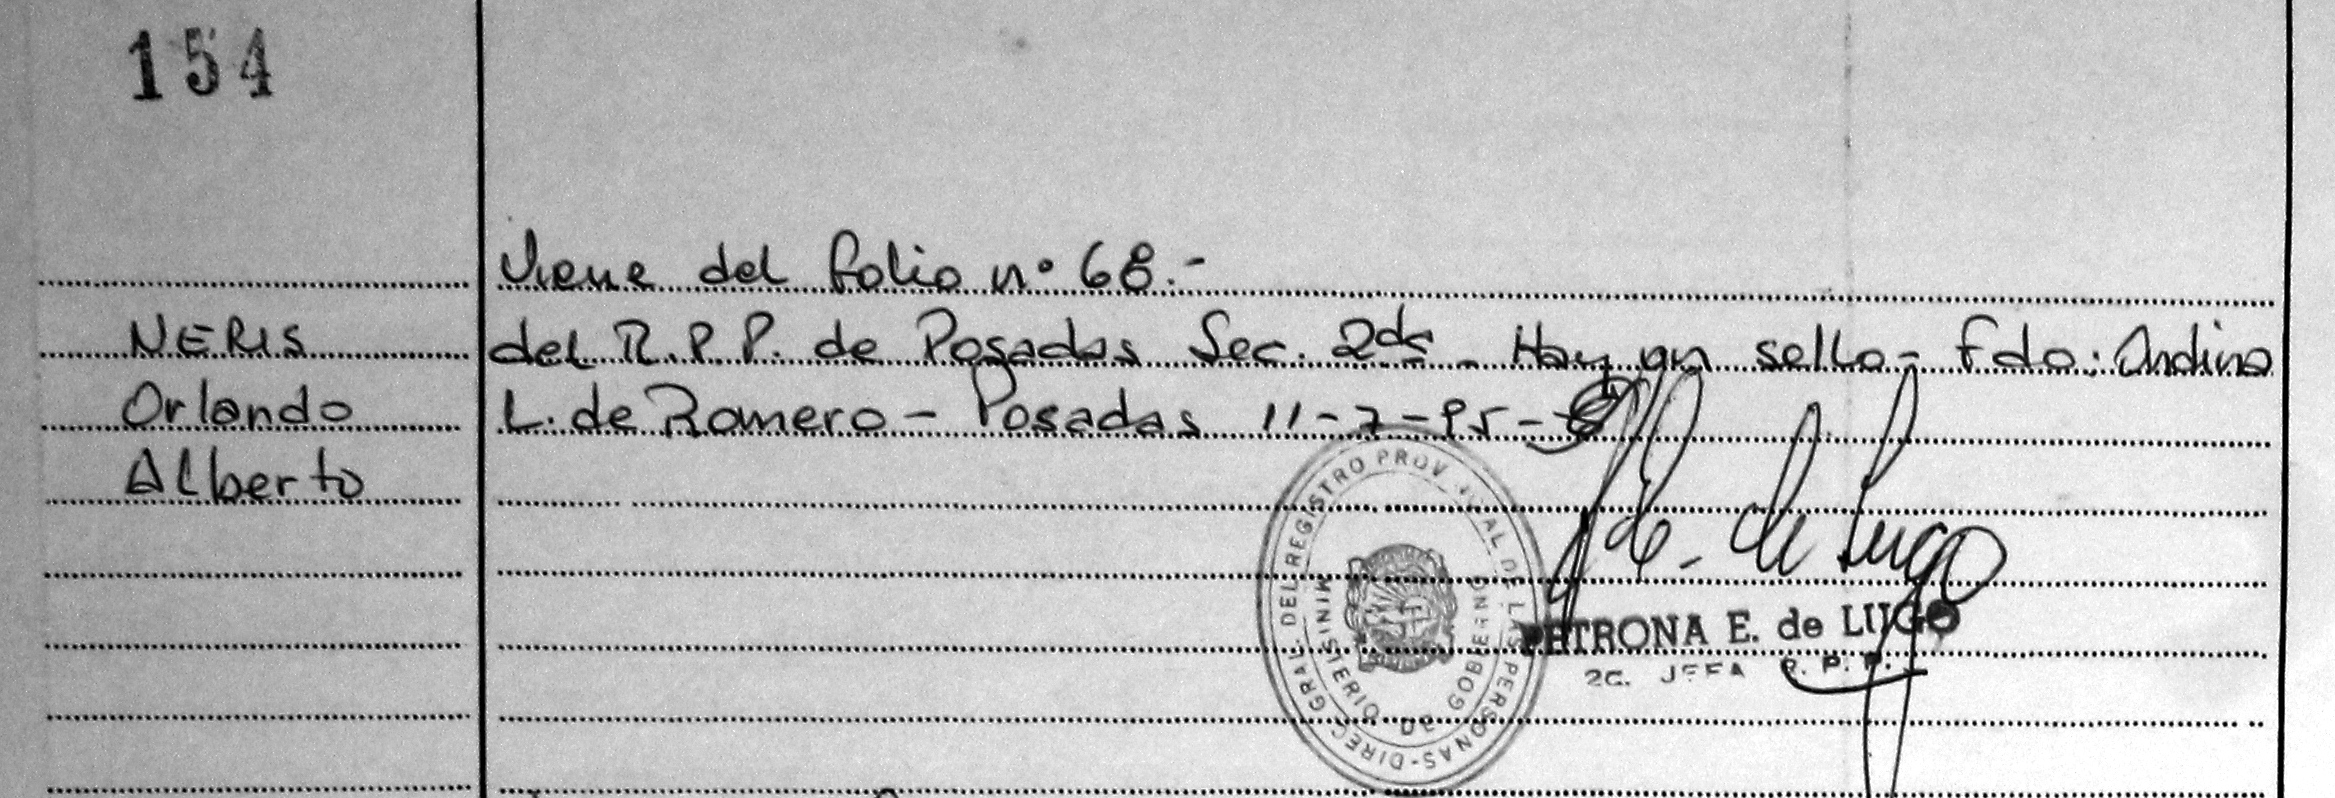 154
Viene del folio nº 68.-
NERIS
Orlando
Alberto
del R.P.P. de Posadas Sec. 2da - Hay un sello - Fdo: Andino
L. de Romero - Posadas 11-7-95-
DIREC. GRAL. DEL REGISTRO PROV DE LAS PERSONAS
MINISTERIO DE GOBIERNO
de Lugo
PETRONA E. de LUGO
2a. JEFA R. P. P.